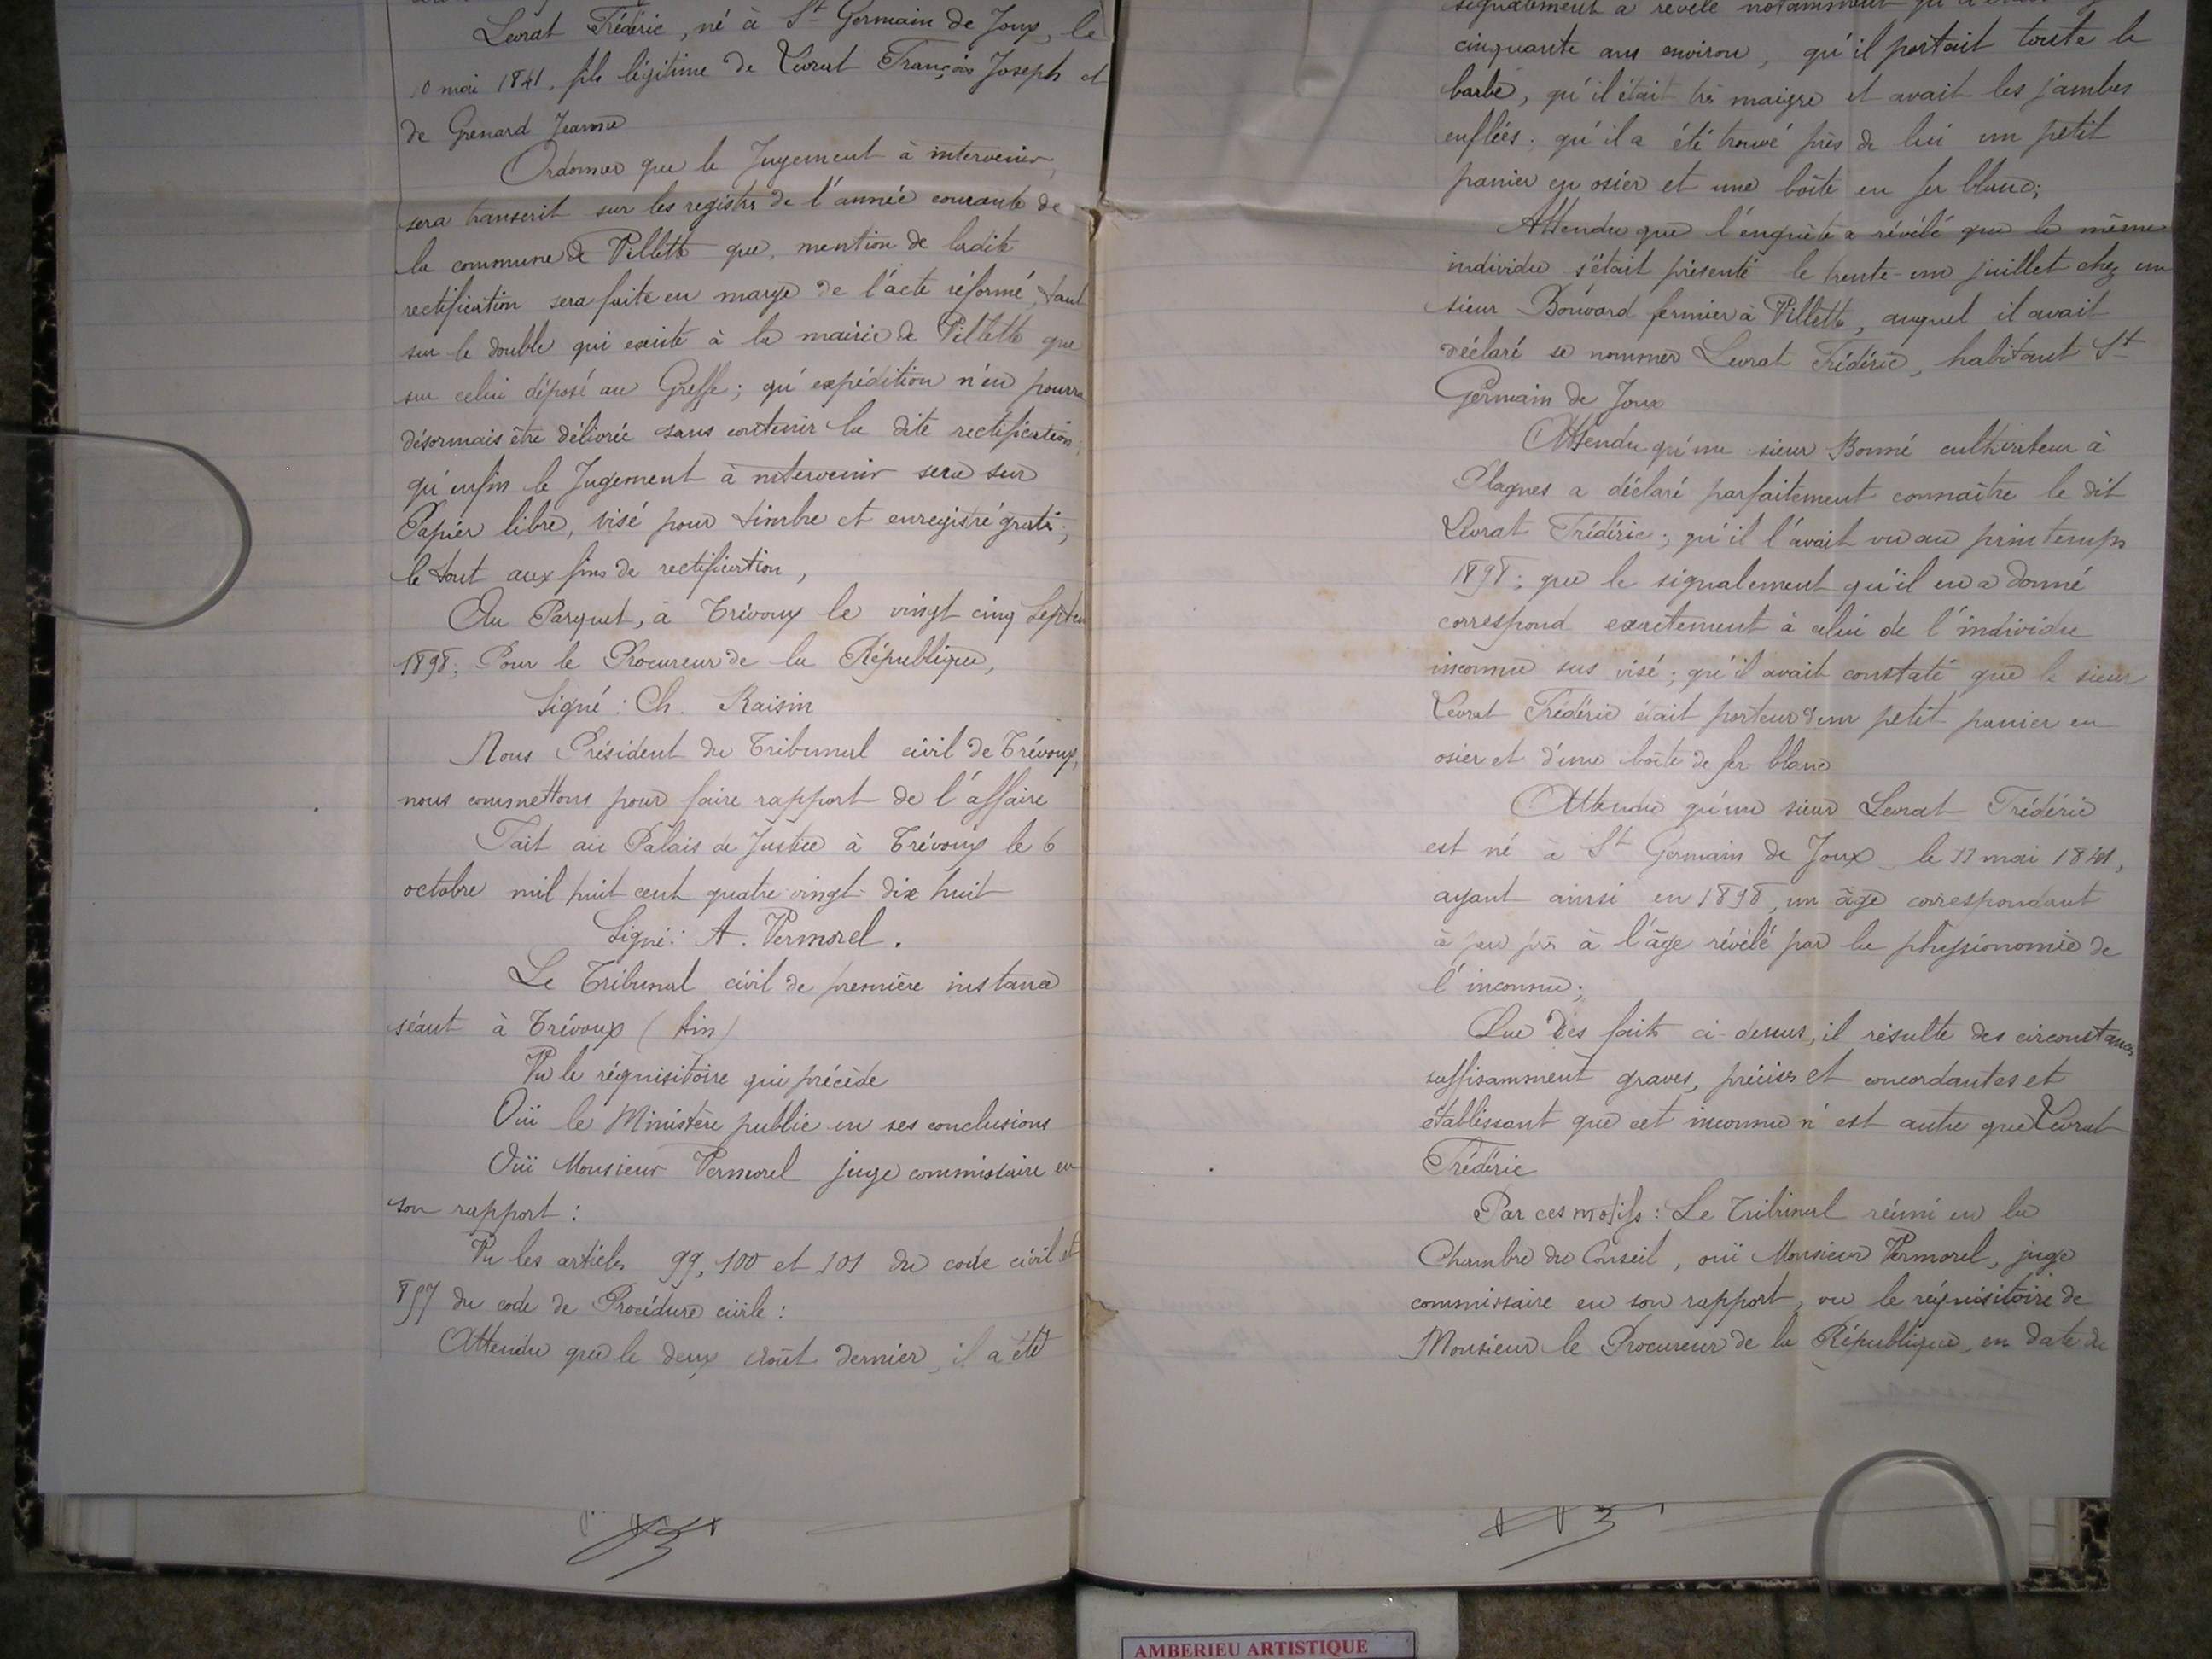 Levrat Frédéric, né à St Germain de Joux, le
10 mai 1841, fils légitime de Levrat François Joseph et
de Grenard Jeanne
Ordonner que le Jugement à intervenir,
sera transcrit sur les registres de l'année courante de
la commune de Villette que, mention de ladite
rectification sera faite en marge de l'acte réformé, tant
sur le double qui existe à la mairie de Villette que
sur celui déposé au Greffe; qu'expédition n'en pourra
désormais être délivrée sans contenir la dite rectification;
qu'enfin le Jugement à intervenir sera sur
Papier libre, visé pour timbre et enregistré gratis;
le tout aux fins de rectification,
Au Parquet, à Trévoux le vingt cinq Septem
1898. Pour le Procureur de la République,
Signé : Ch. Raisin
Nous Président du Tribunal civil de Trévoux,
nous commettons pour faire rapport de l'affaire
Fait au Palais de Justice à Trévoux le 6
octobre mil huit cent quatre-vingt-dix huit
Signé: A. Vermorel.
Le Tribunal civil de première instance
séant à Trévoux (Ain)
Vu le réquisitoire qui précède
Ouï le Ministère public en ses conclusions
Ouï Monsieur Vermorel juge commissaire en
son rapport :
Vu les articles 99, 100 et 101 du code civil et
857 du code de Procédure civile :
Attendu que le deux août dernier, il a été
signalement a révélé notamment
cinquante ans environ, qu'il portait toute la
barbe, qu'il était très maigre et avait les jambes
enflées; qu'il a été trouvé près de lui un petit
panier en osier et une boîte en fer blanc;
Attendu que l'enquête a révélé que le même
individu s'était présenté le trente-un juillet chez un
sieur Bouvard fermier à Villette, auquel il avait
déclaré se nommer Levrat Frédéric, habitant St
Germain de Joux
Attendu qu'un sieur Bonné cultivateur à
Plagnes a déclaré parfaitement connaître le dit
Levrat Frédéric; qu'il l'avait vu au printemps
1898; que le signalement qu'il en a donné
correspond exactement à celui de l'individu
inconnu sus visé; qu'il avait constaté que le sieur
Levrat Frédéric était porteur d'un petit panier en
osier et d'une boîte de fer blanc
Attendu qu'un sieur Levrat Frédéric
est né à St Germain de Joux le 11 mai 1841,
ayant ainsi en 1898, un âge correspondant
à peu près à l'âge révélé par la physionomie de
l'inconnu;
Que des faits ci-dessus, il résulte des circonstances
suffisamment graves, précises et concordantes et
établissant que cet inconnu n'est autre que Levrat
Frédéric
Par ces motifs : Le Tribunal réuni en la
Chambre du Conseil, ouï Monsieur Vermorel, juge
commissaire en son rapport, vu le réquisitoire de
Monsieur le Procureur de la République en date du
AMBERIEU ARTISTIQUE